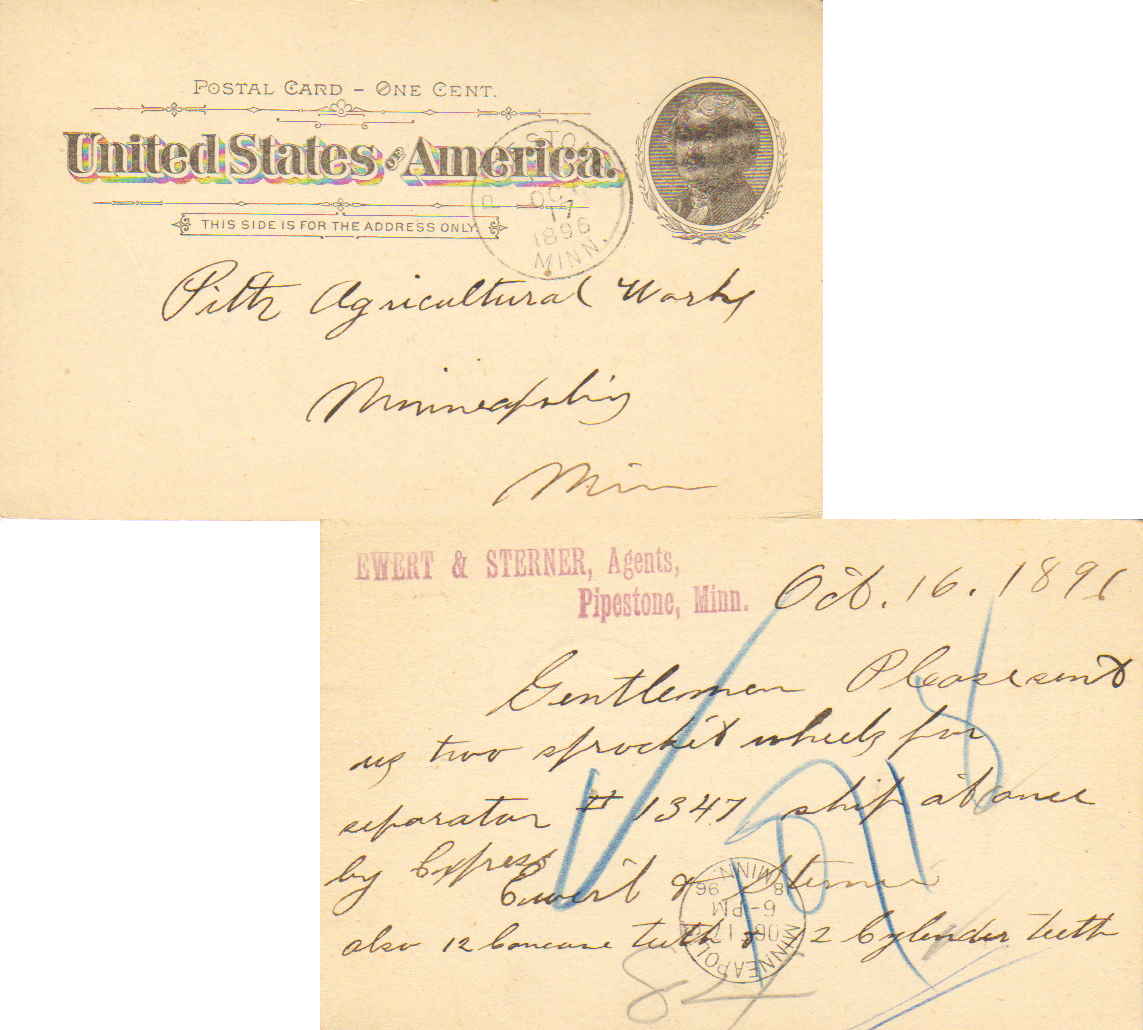 POSTAL CARD – ONE CENT.
United States of America.
THIS SIDE IS FOR THE ADDRESS ONLY.
P STO
OCT
17
1896
MINN.
Pitts Agricultural Works
Minneapolis
Minn
EWERT & STERNER, Agents,
Pipestone, Minn.
Oct. 16. 1896
Gentlemen Please sent
us two sprocket wheels for
separator # 1347 ship at once
by Express
Ewert & Sterner
also 12 Concave teeth & 12 Cylender teeth
MINNEAPOLIS
OCT 17
6-PM
8 96
MINN.